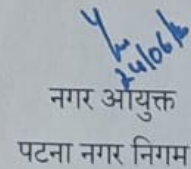 24/06/
नगर आयुक्त
पटना नगर निगम